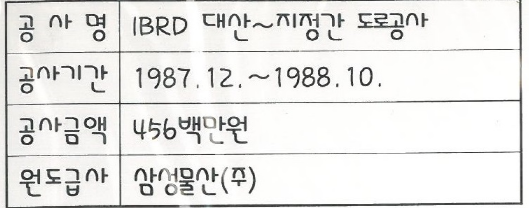 공 사 명 IBRD 대산~지정간 도로공사
공사기간 1987.12.~1988.10.
공사금액 456백만원
원도급사 삼성물산(주)